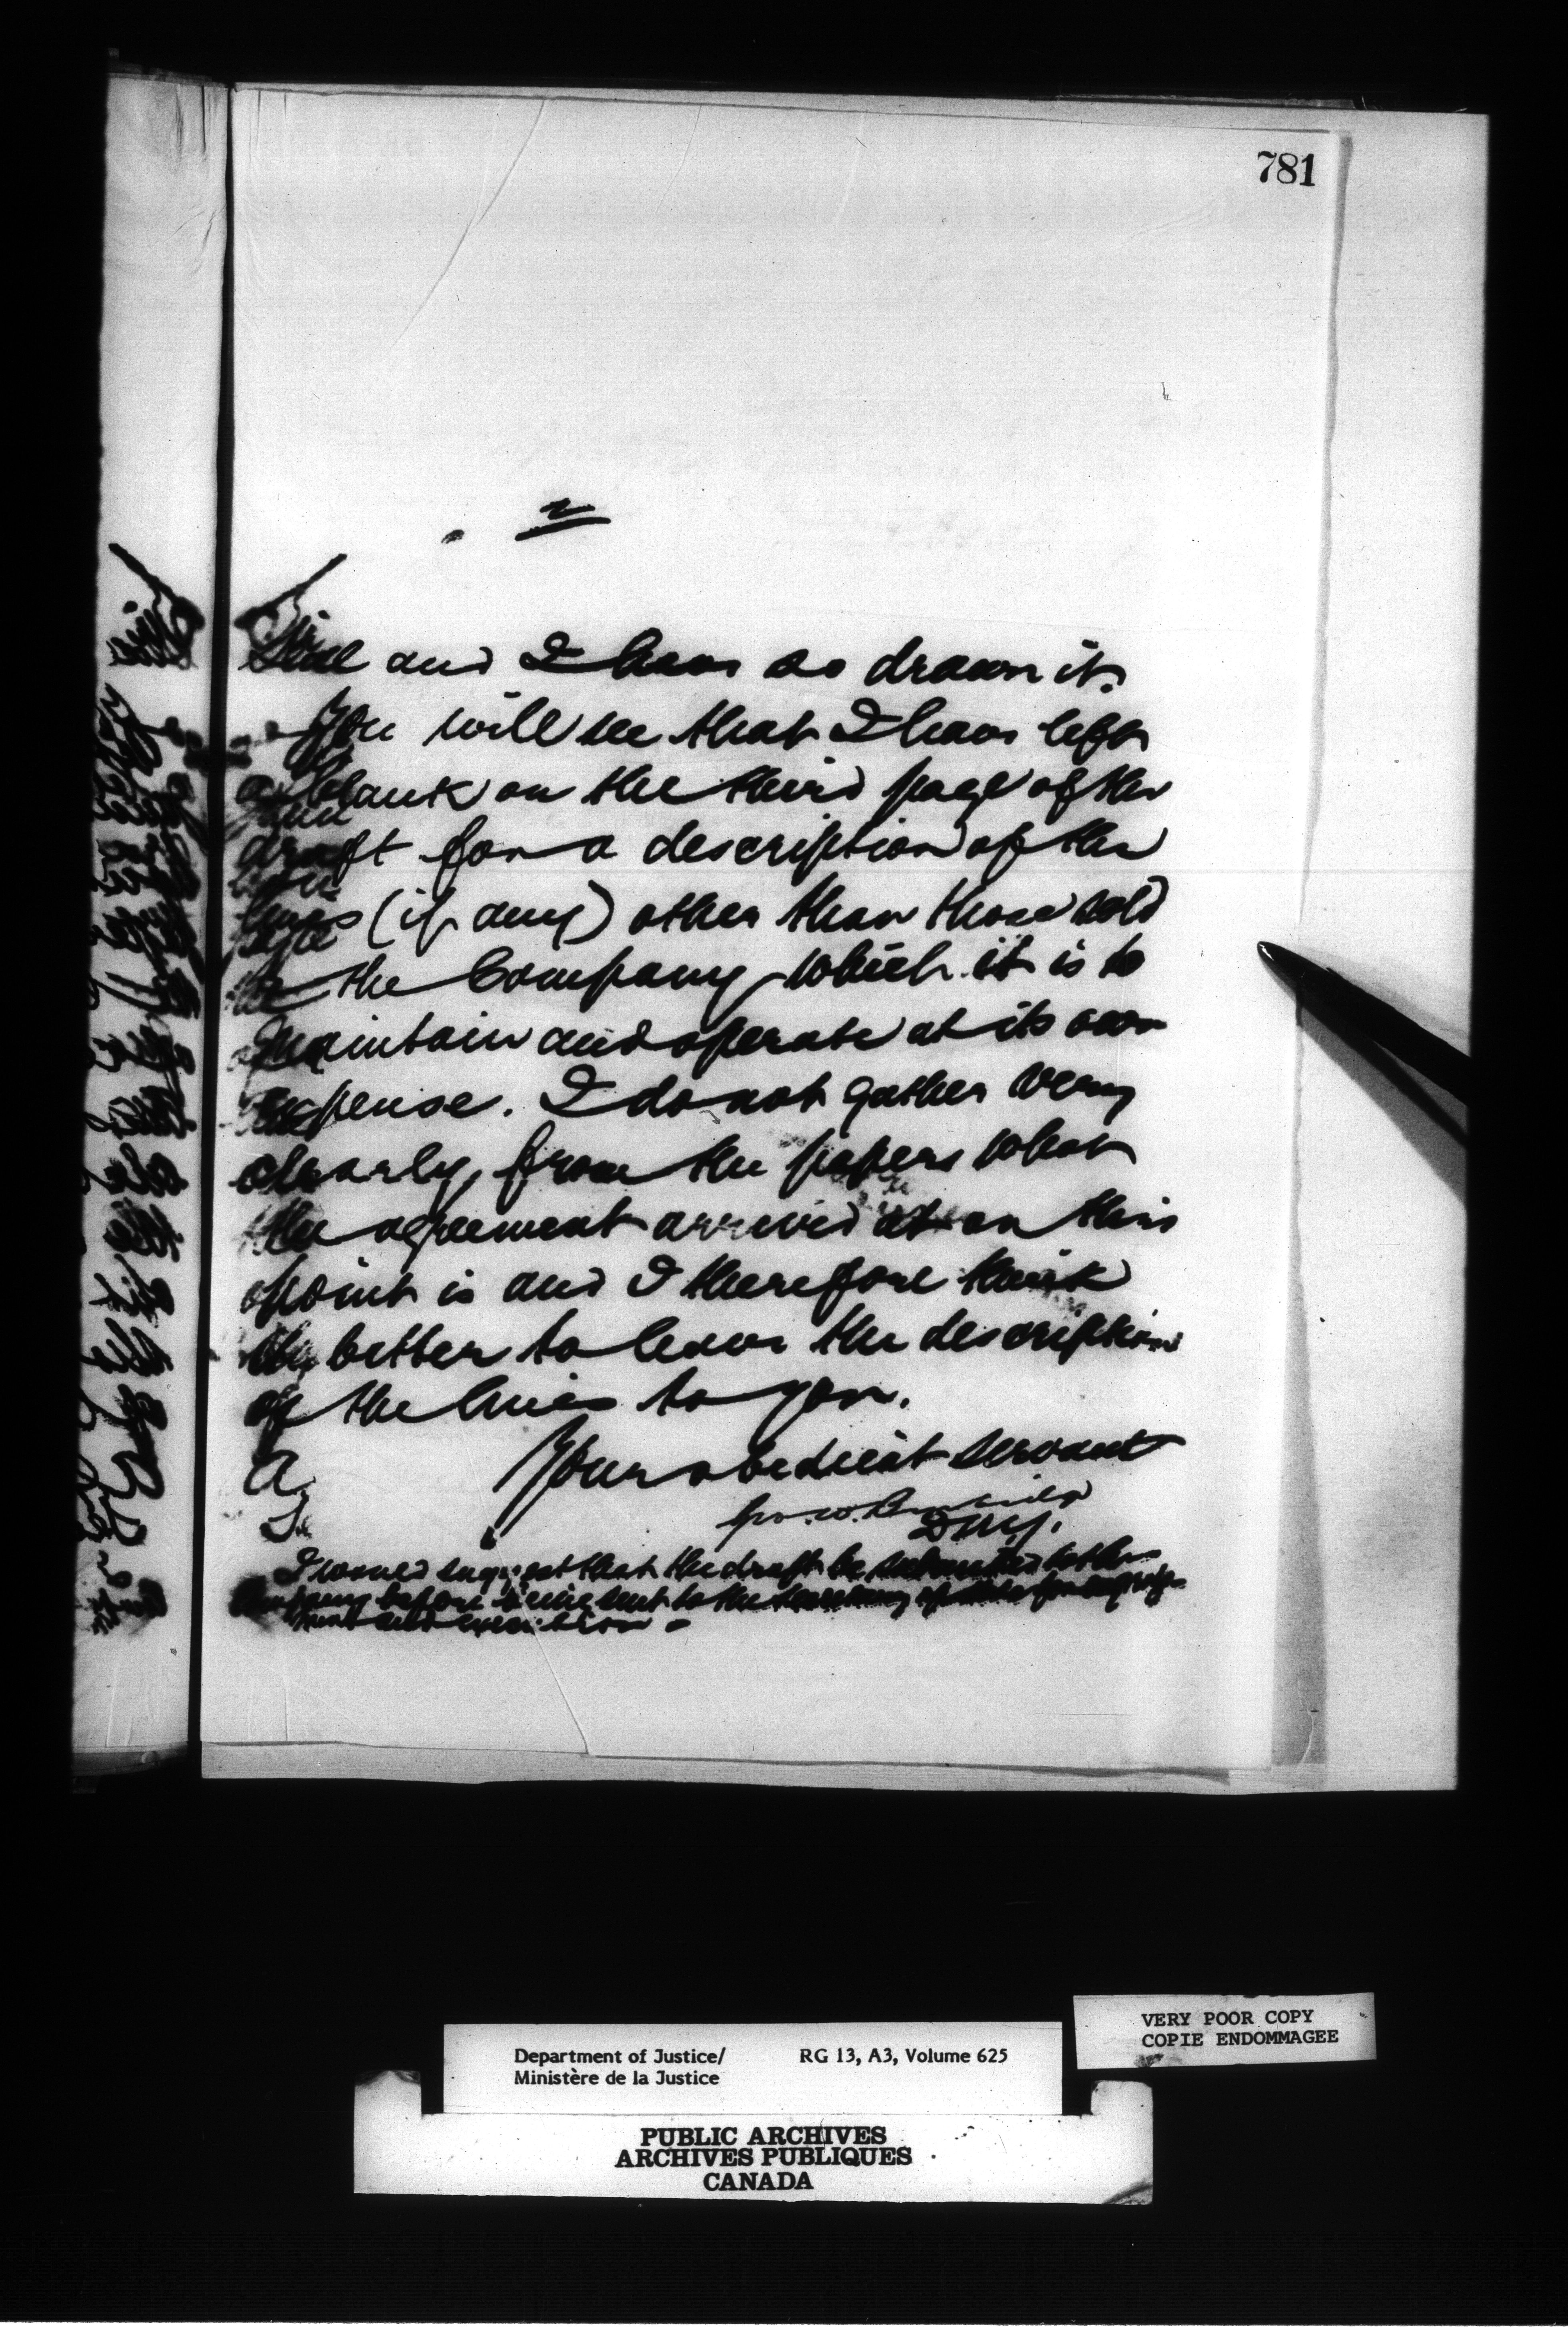 781
2
and I have so drawn it.
You will see that I have left
a blank on the third page of the
draft for a description of the
lines (if any) other than those sold
to the Company which it is to
maintain and operate at its own
expense. I do not gather very
clearly from the papers what
the agreement arrived at on this
point is and I therefore think
it better to leave the description
of the lines to you.
Your obedient servant
Geo. W. Burbidge
D.M.J.
I would suggest that the draft be submitted to the
Company before being sent to the Secretary of State for
and execution.
VERY POOR COPY
COPIE ENDOMMAGEE
Department of Justice/ RG 13, A3, Volume 625
Ministère de la Justice
PUBLIC ARCHIVES
ARCHIVES PUBLIQUES
CANADA